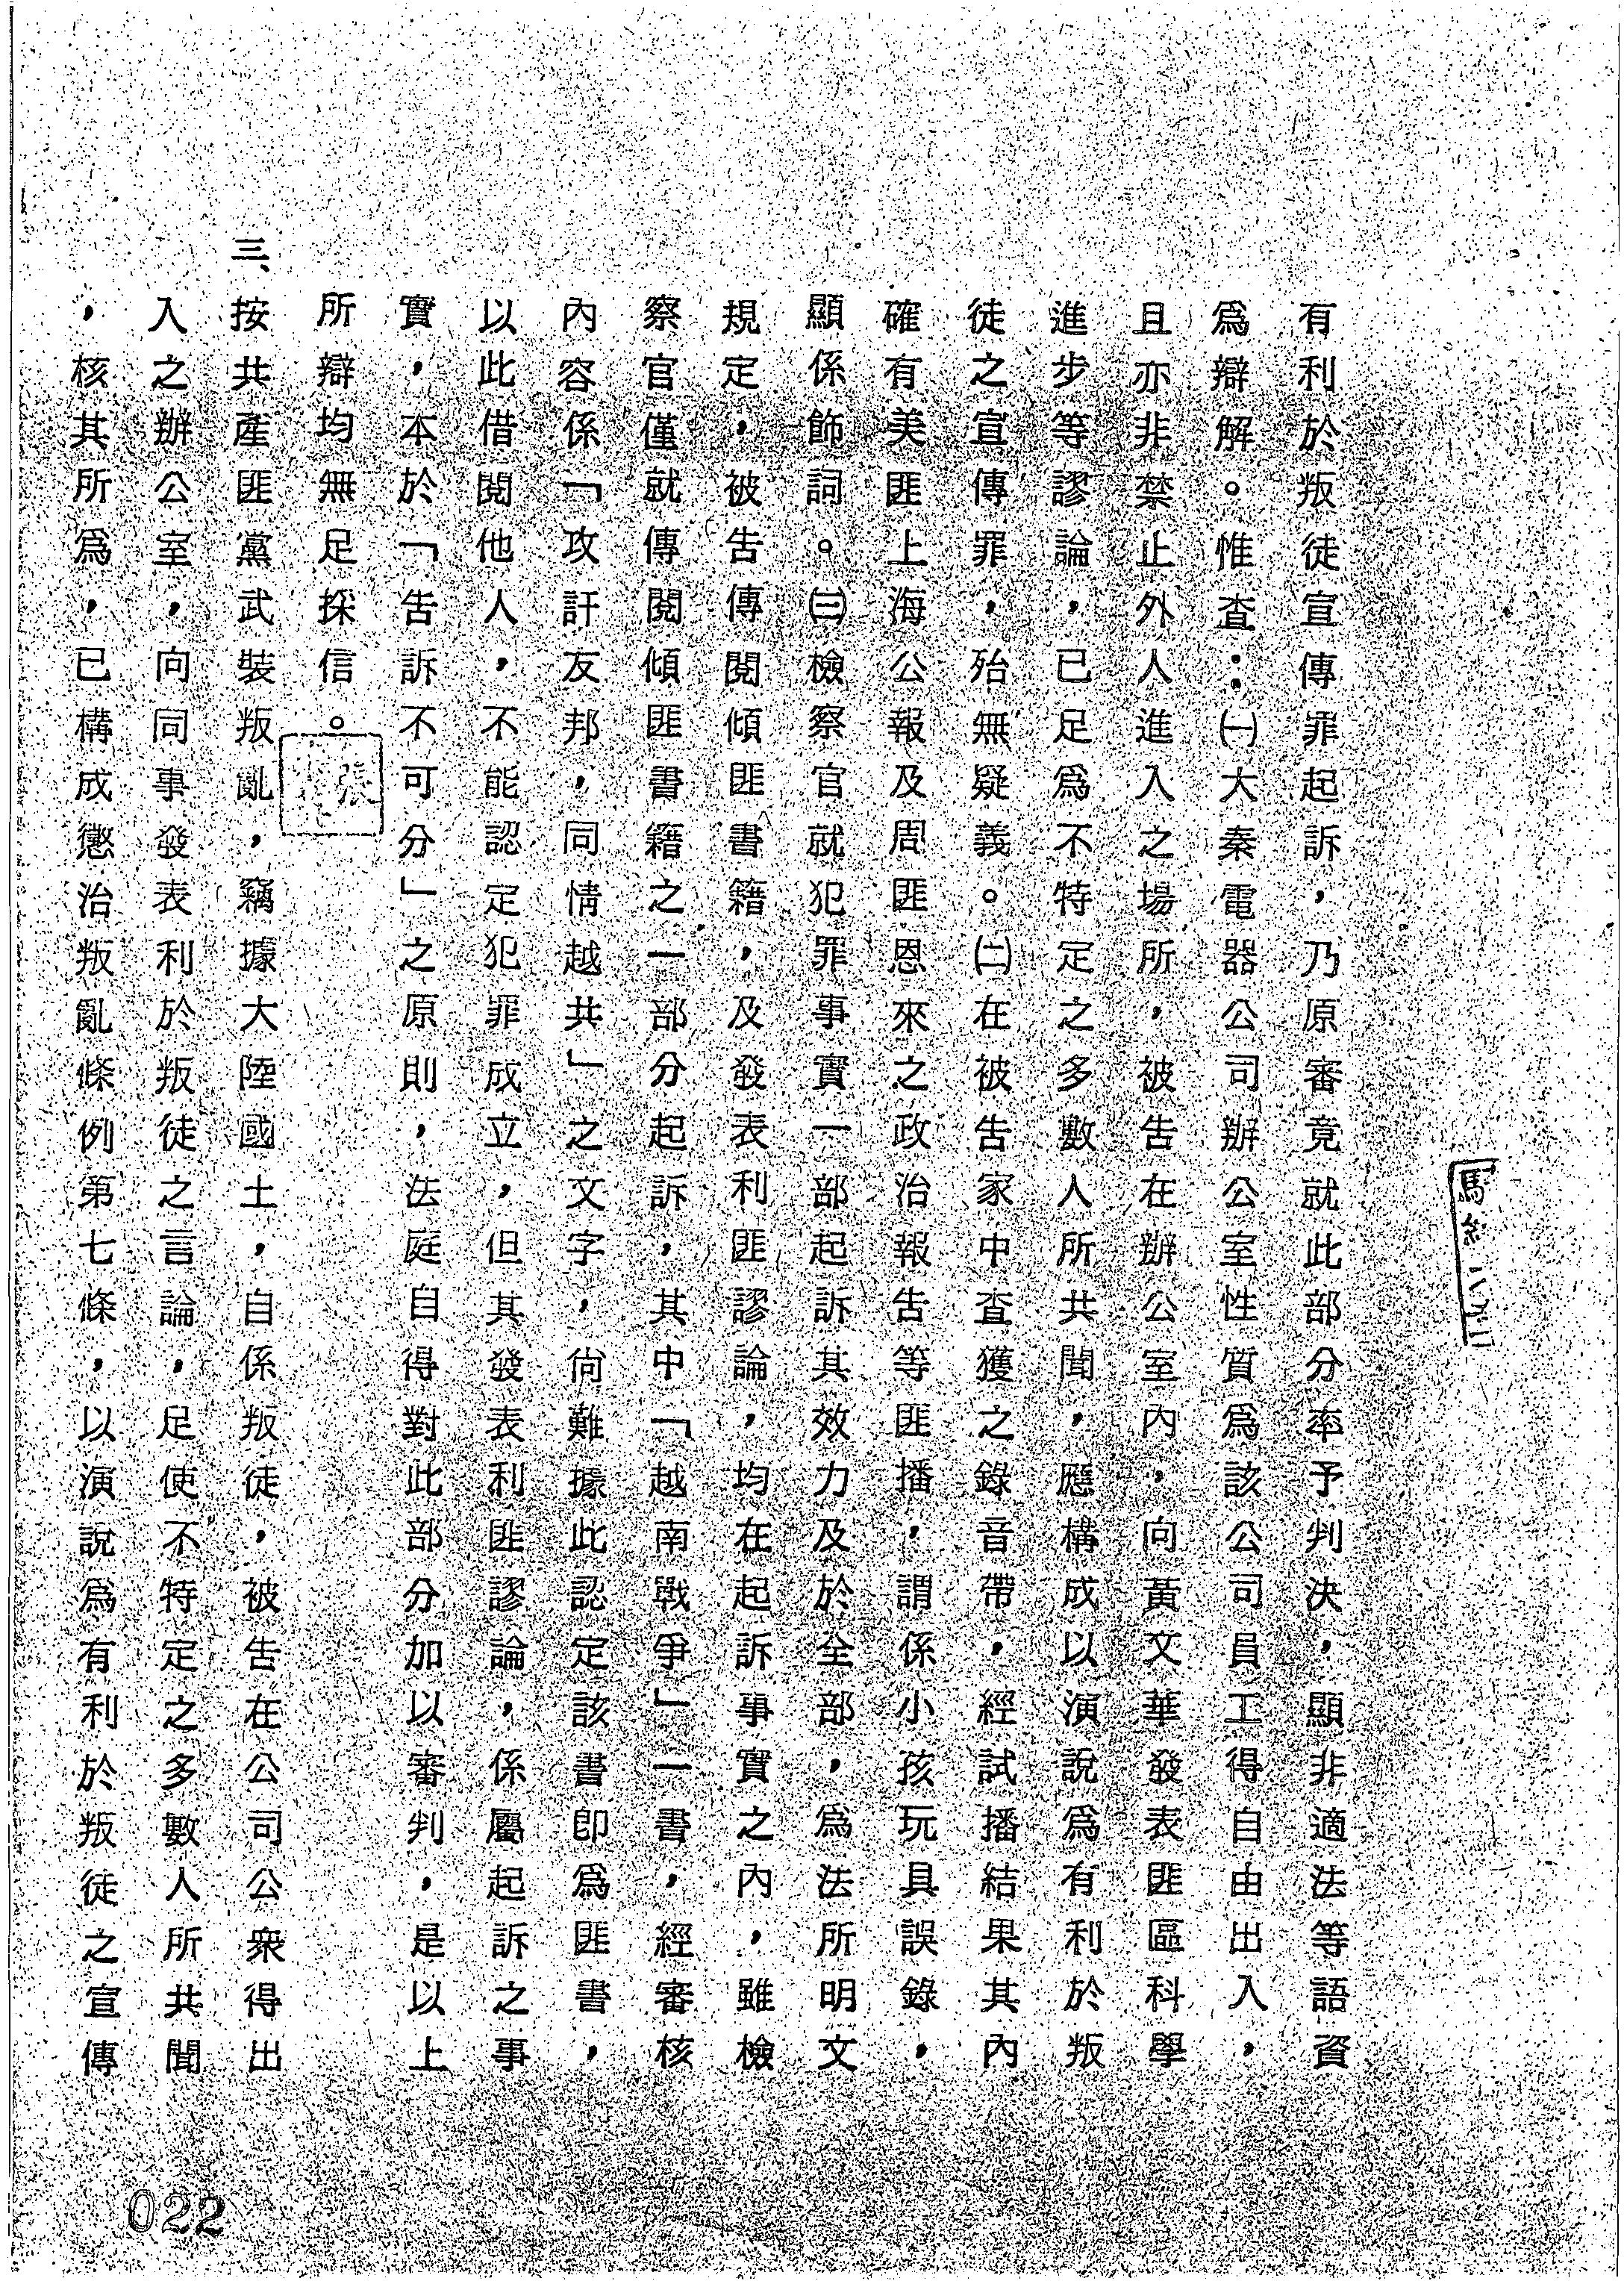 有利於叛徒宣傳罪起訴，乃原審竟就此部分率予判決，顯非適法等語資
爲辯解。惟查：㈠大秦電器公司辦公室性質爲該公司員工得自由出入，
且亦非禁止外人進入之場所，被告在辦公室內，向黃文華發表匪區科學
進步等謬論，已足爲不特定之多數人所共聞，應構成以演說爲有利於叛
徒之宣傳罪，殆無疑義。㈡在被告家中查獲之錄音帶，經試播結果其內
確有美匪上海公報及周匪恩來之政治報告等匪播，謂係小孩玩具誤錄，
顯係飾詞。㈢檢察官就犯罪事實一部起訴其效力及於全部，爲法所明文
規定，被告傳閱傾匪書籍，及發表利匪謬論，均在起訴事實之內，雖檢
察官僅就傳閱傾匪書籍之一部分起訴，其中「越南戰爭」一書，經審核
內容係「攻訐友邦，同情越共」之文字，尙難據此認定該書卽爲匪書，
以此借閱他人，不能認定犯罪成立，但其發表利匪謬論，係屬起訴之事
實，本於「告訴不可分」之原則，法庭自得對此部分加以審判，是以上
所辯均無足採信。
三、按共產匪黨武裝叛亂，竊據大陸國土，自係叛徒，被告在公司公衆得出
入之辦公室，向同事發表利於叛徒之言論，足使不特定之多數人所共聞
，核其所爲，已構成懲治叛亂條例第七條，以演說爲有利於叛徒之宣傳
022